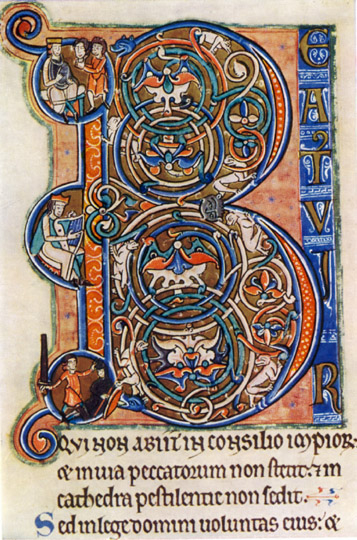 B
E
A
T
V
I
R
QUI NON ABIIT IN CONSILIO IMPIOR:
& in uia peccatorum non stetit: & in
cathedra pestilentie non sedit.
Sed in lege domini uoluntas eius: &